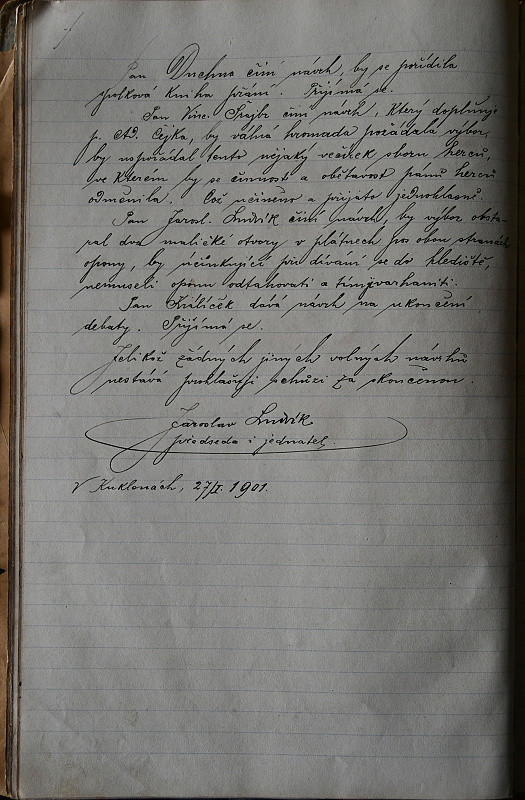 Pan Duchna činí návrh, by se pořídila
spolková kniha přání. Přijímá se.
Pan Vinc. Šrajbr činí návrh, který doplňuje
p. Ad. Cejka, by valná hromada požádala výbor,
by uspořádal tento nějaký večírek sboru herců,
ve kterém by se činnost a obětavost pánů herců
odměnila. Což učiněno a přijato jednohlasně.
Pan Jarosl. Ludvík činí návrh, by výbor obsta-
ral dva maličké otvory v plátnech po obou stranách
opony, by účinkující při dívání se do hlediště,
nemuseli oponu odtahovati a tím
Pan Králíček dává návrh na ukončení
debaty. Přijímá se.
Jelikož žádných jiných volných návrhů
nestává prohlašuji schůzi za skončenou.
Jaroslav Ludvík
předseda i jednatel.
V Kuklenách, 27/I. 1901.